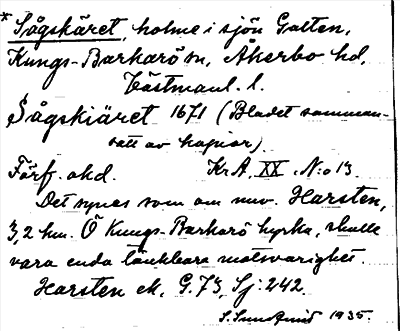 * Sågskäret, holme i sjön Galten,
Kungs-Barkarö sn, Åkerbo hd,
Västmanl. l.
Sågskiäret 1671 (Bladet samman-
satt av kopior).
Förf. okd. Kr.A. XX. N:o 13.
Det synes som om nuv. Harsten,
3,2 km. Ö Kungs-Barkarö kyrka, skulle
vara enda tänkbara motsvarighet.
Harsten ek. G.73, Sj: 242.
S. Sundquist 1935.